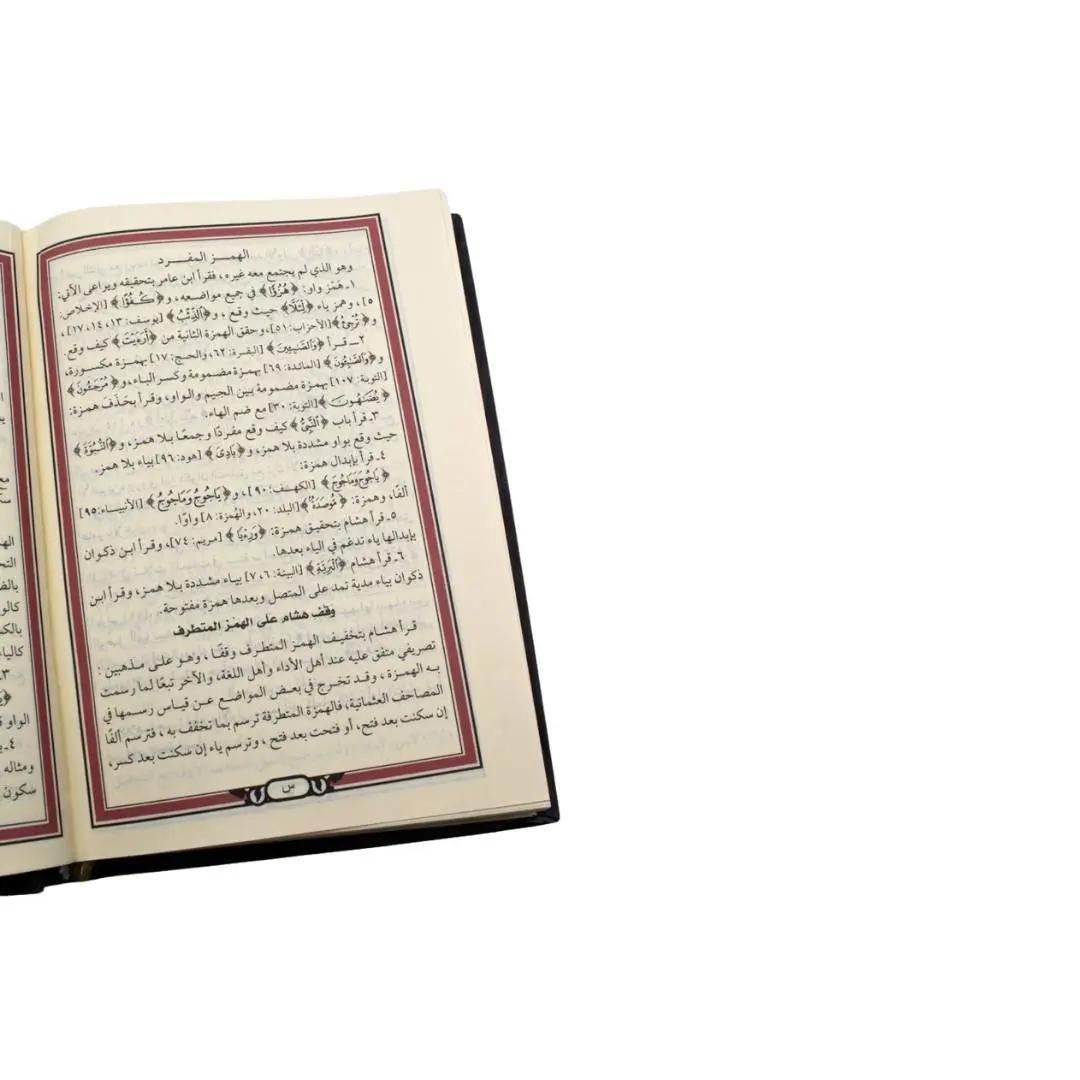 الهمــز المفــرد
وهو الذي لم يجتمع معه غيره، فقرأ ابن عامر بتحقيقه ويراعى الآتي:
١ـ هَمْز واو: ﴿هُزُؤًا﴾ في جميع مواضعه، و﴿كُفُؤًا﴾ [الإخلاص:
٥]، وهمز ياء ﴿لِئَلَّا﴾ حيث وقع، و﴿ٱلذِّئْبُ﴾ [يوسف: ١٣، ١٤، ١٧]،
و﴿تُرْجِئُ﴾ [الأحزاب: ٥١]، وحقق الهمزة الثانية من ﴿أَرَءَيْتَ﴾ كيف وقع.
٢ـ قرأ ﴿وَٱلصَّٰبِـِٔينَ﴾ [البقرة: ٦٢، والحج: ١٧] بهمزة مكسورة،
و﴿وَٱلصَّٰبِـُٔونَ﴾ [المائدة: ٦٩] بهمزة مضمومة وكسر الباء، و﴿مُرْجَـُٔونَ﴾
[التوبة: ١٠٧] بهمزة مضمومة بين الجيم والواو، وقرأ بحَذف همزة:
﴿يُضَٰهُونَ﴾ [التوبة: ٣٠] مع ضم الهاء.
٣ـ قرأ باب ﴿ٱلنَّبِيُّ﴾ كيف وقع مفردًا وجمعًا بلا همز، و﴿ٱلنُّبُوَّةَ﴾
حيث وقع بواو مشددة بلا همز، و﴿بَادِيَ﴾ [هود: ٩٦] بياء بلا همز.
٤ـ قرأ بإبدال همزة:
﴿يَاجُوجَ وَمَاجُوجَ﴾ [الكهف: ٩٠]، و﴿يَاجُوجُ وَمَاجُوجُ﴾ [الأنبياء: ٩٥]
ألفًا، وهمزة: ﴿مُّوصَدَةٌ﴾ [البلد: ٢٠، والهُمزة: ٨] واوًا.
٥ـ قرأ هشام بتحقيق همزة: ﴿وَرِءْيًا﴾ [مريم: ٧٤]، وقرأ ابن ذكوان
بإبدالها ياء تدغم في الياء بعدها.
٦ـ قرأ هشام ﴿ٱلْبَرِيَّةِ﴾ [البينة: ٦، ٧] بياء مشددة بلا همز، وقرأ ابن
ذكوان بياء مدية تمد على المتصل وبعدها همزة مفتوحة.
وقف هشام على الهمز المتطرف
قرأ هشام بتخفيف الهمز المتطرف وقفًا، وهو على مذهبين:
تصريفي متفق عليه عند أهل الأداء وأهل اللغة، والآخر تبعًا لما رسمت
به الهمزة، وقد تخرج في بعض المواضع عن قياس رسمها في
المصاحف العثمانية، فالهمزة المتطرفة ترسم بما تخفف به، فترسم ألفًا
إن سكنت بعد فتح، أو فتحت بعد فتح، وترسم ياء إن سكنت بعد كسر،
س